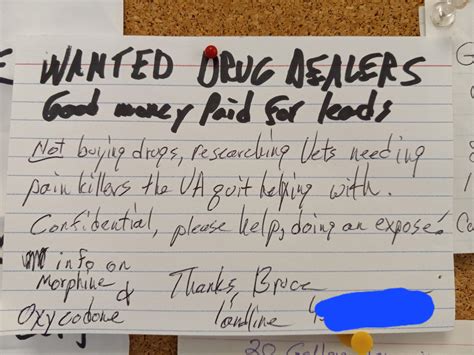 WANTED DRUG DEALERS
Good money Paid for leads
Not buying drugs, researching Vets needing
pain killers the VA quit helping with.
Confidential, please help, doing an exposé!
info on
Morphine &
Oxycodone
Thanks, Bruce
landline
20 Gallon